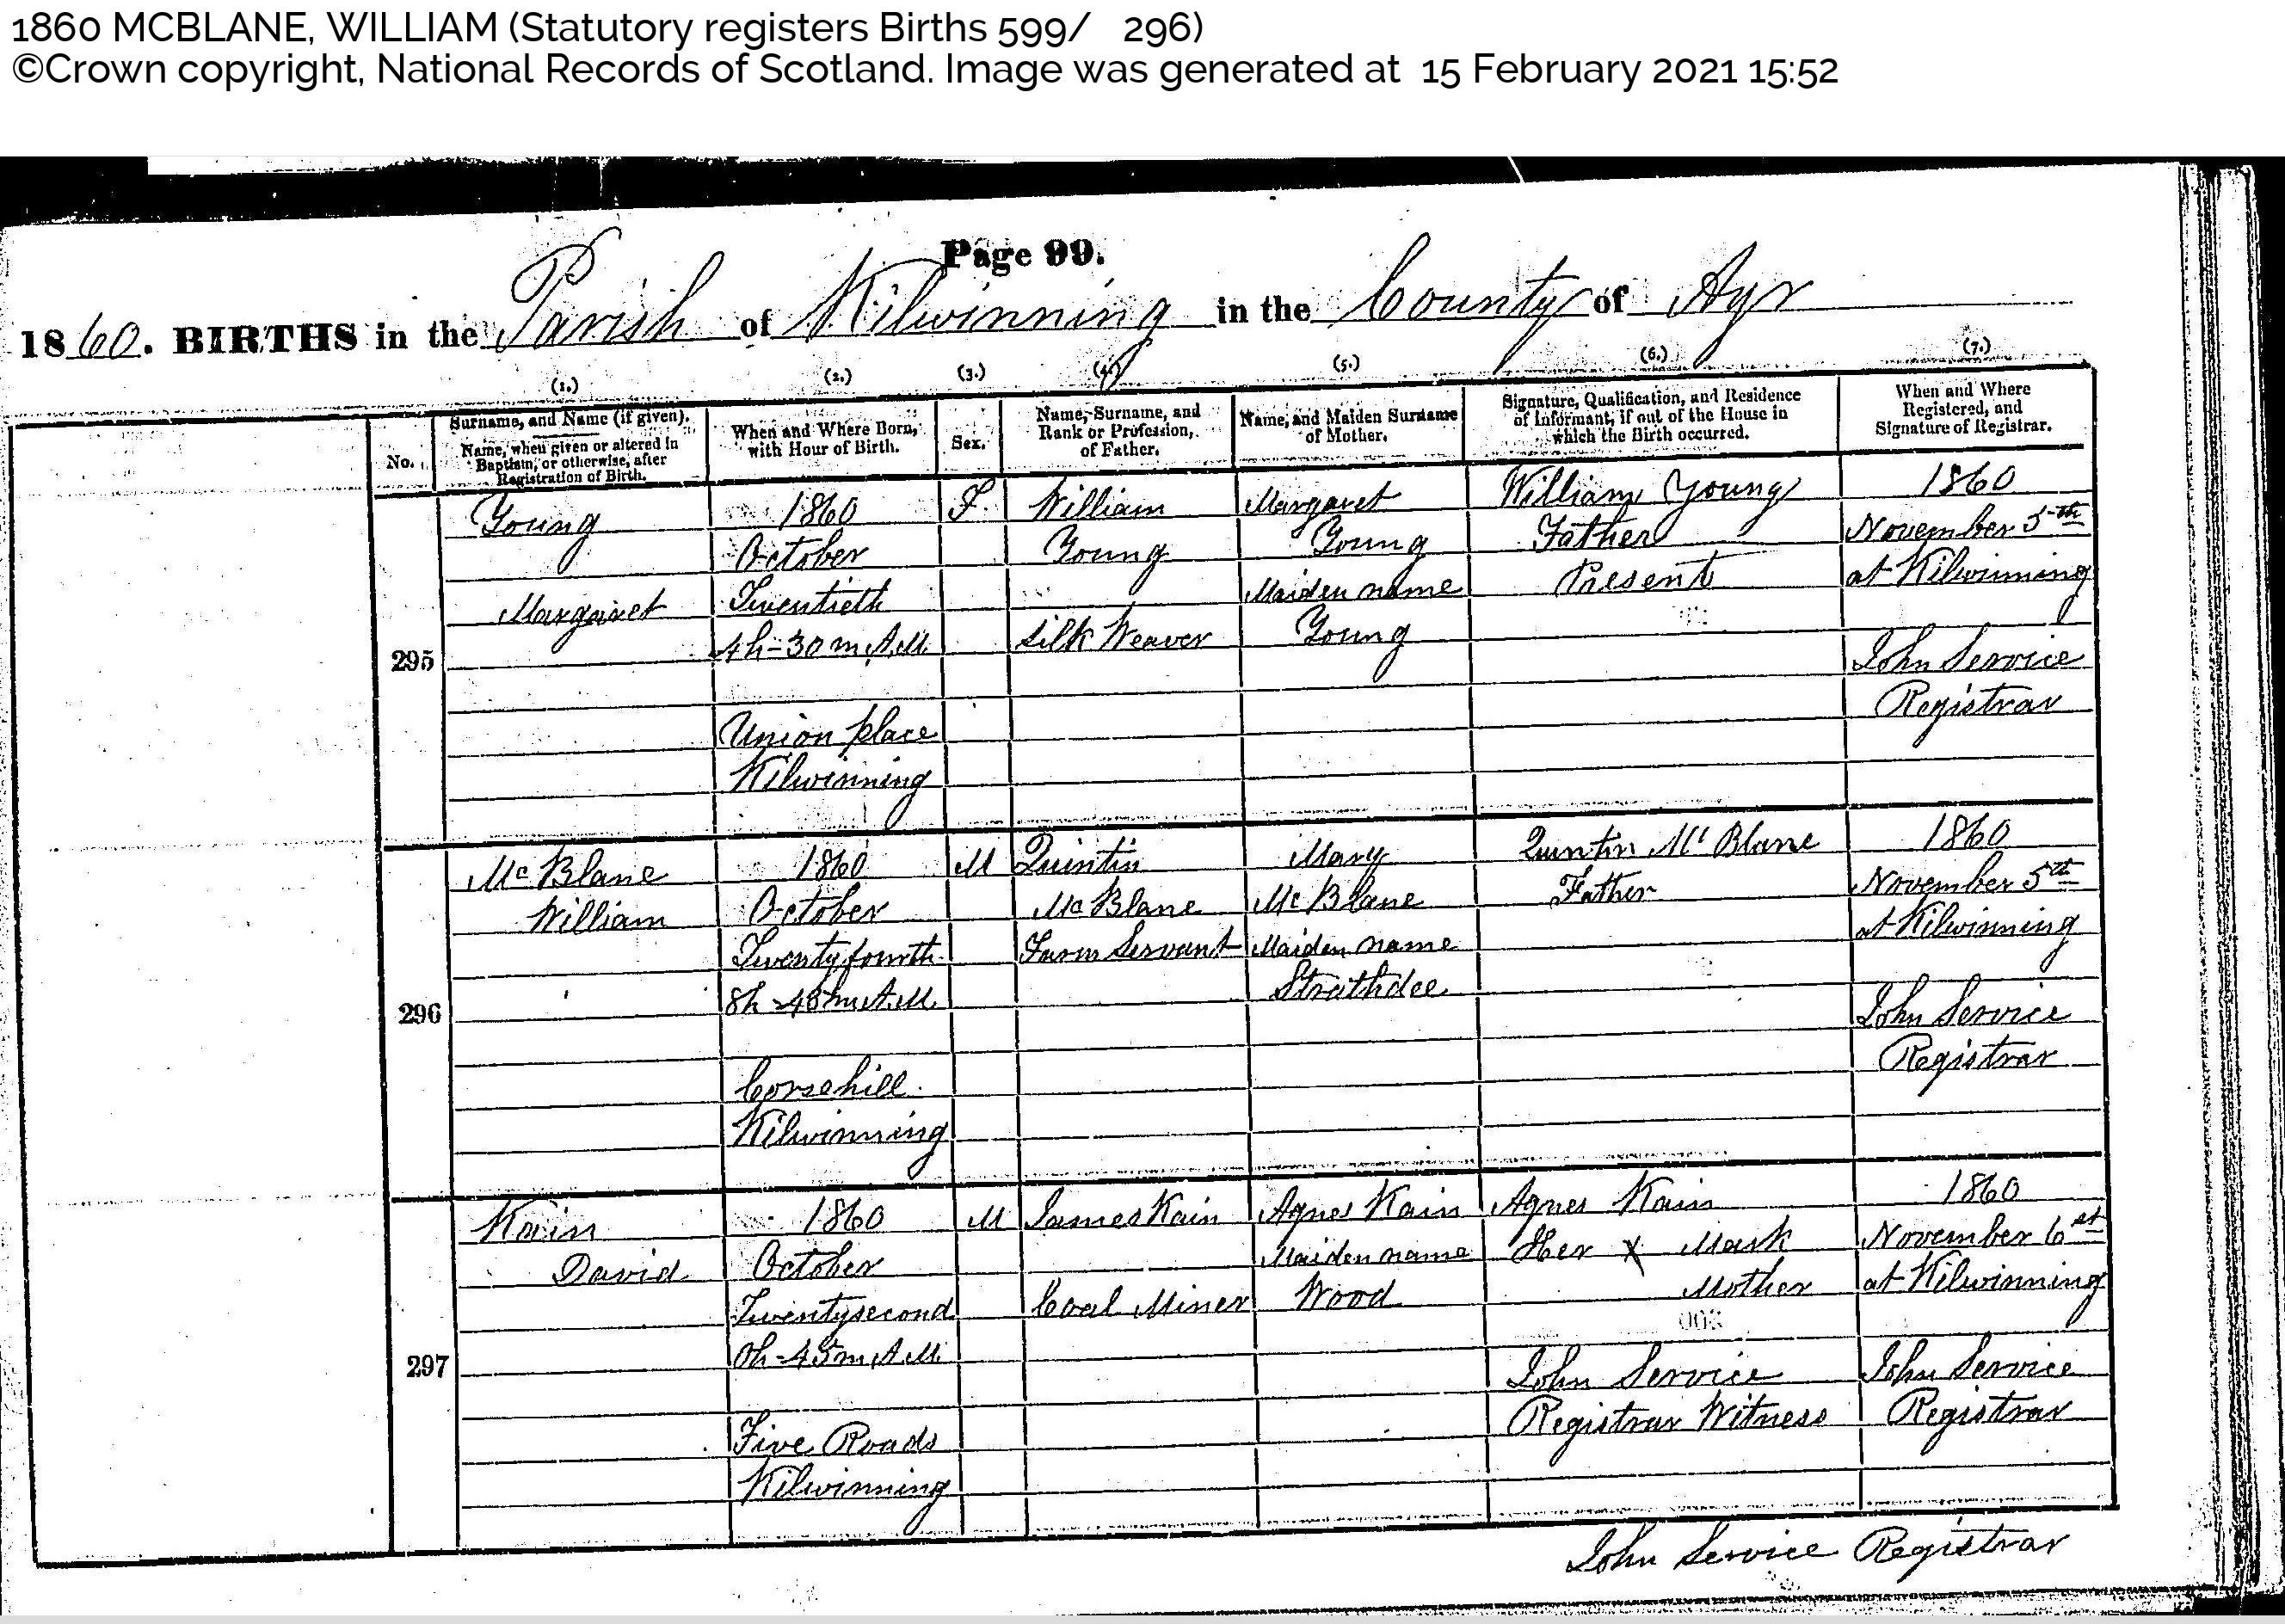 1860 MCBLANE, WILLIAM (Statutory registers Births 599/ 296)
©Crown copyright, National Records of Scotland. Image was generated at 15 February 2021 15:52
Page 99.
1860. BIRTHS in the Parish of Kilwinning in the County of Ayr
(1.) (2.) (3.) (4.) (5.) (6.) (7.)
No.
Surname, and Name (if given).
Name, when given or altered in
Baptism, or otherwise, after
Registration of Birth.
When and Where Born,
with Hour of Birth.
Sex.
Name, Surname, and
Rank or Profession,
of Father.
Name, and Maiden Surname
of Mother.
Signature, Qualification, and Residence
of Informant, if out of the House in
which the Birth occurred.
When and Where
Registered, and
Signature of Registrar.
295
Young
Margaret
1860
October
Twentieth
4h-30m A.M.
Union place
Kilwinning
F.
William
Young
Silk Weaver
Margaret
Young
Maiden name
Young
William Young
Father
Present
1860
November 5th
at Kilwinning
John Service
Registrar
296
Mc Blane
William
1860
October
Twenty fourth
8h-45m A.M.
Corsehill
Kilwinning
M
Quintin
Mc Blane
Farm Servant
Mary
Mc Blane
Maiden name
Strathdee
Quintin Mc Blane
Father
1860
November 5th
at Kilwinning
John Service
Registrar
297
Kain
David
1860
October
Twentysecond
0h-45m A.M.
Five Roads
Kilwinning
M
James Kain
Coal Miner
Agnes Kain
Maiden name
Wood
Agnes Kain
Her X Mark
Mother
John Service
Registrar Witness
1860
November 6st
at Kilwinning
John Service
Registrar
John Service Registrar